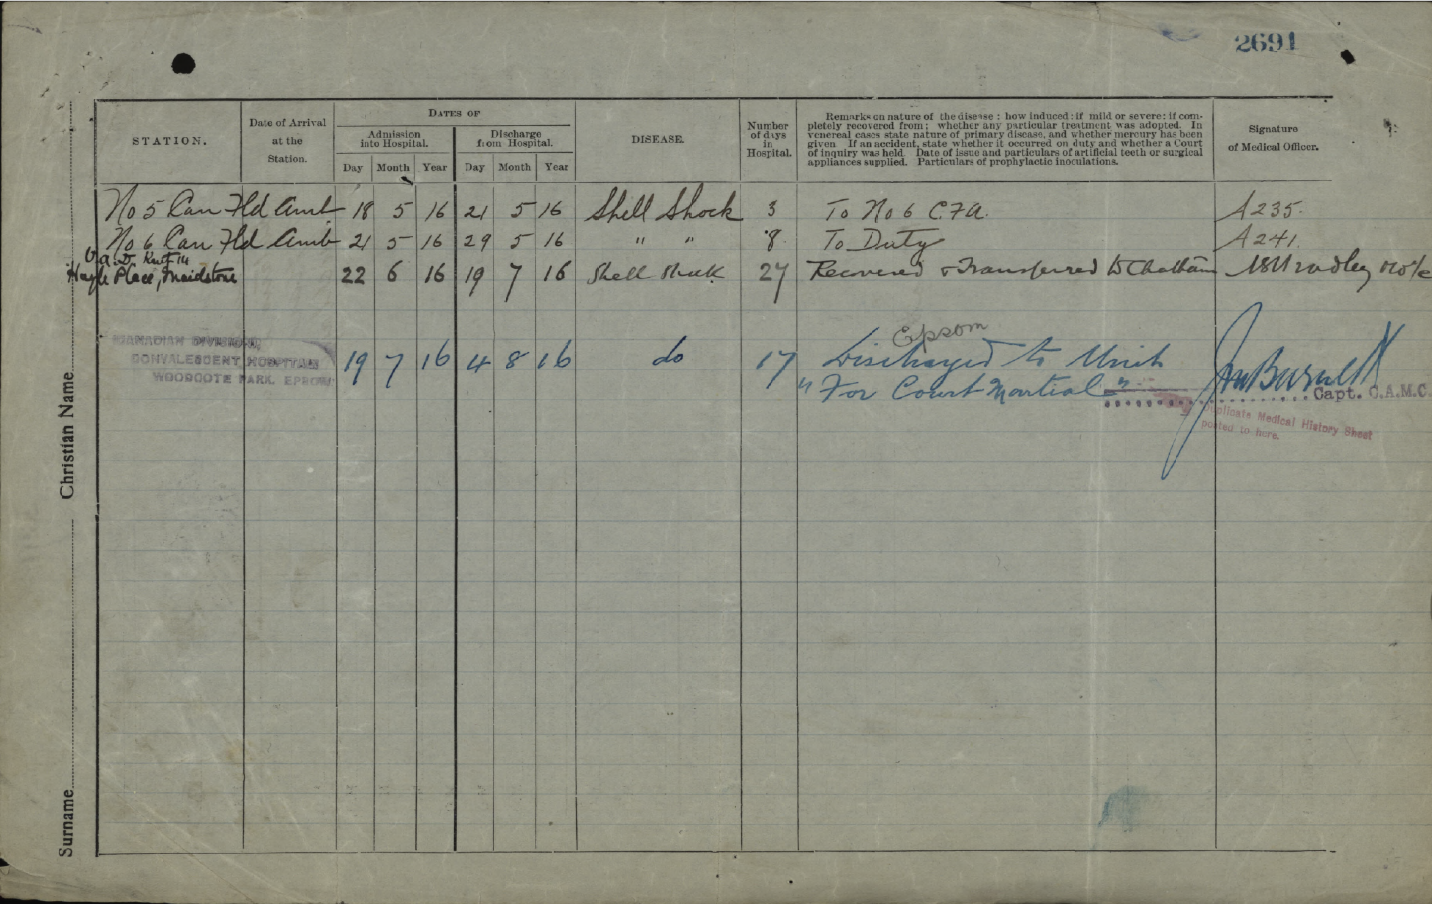 2691
STATION.
Date of Arrival
at the
Station.
DATES OF
Admission
into Hospital.
Discharge
from Hospital.
Day Month Year Day Month Year
DISEASE.
Number
of days
in
Hospital.
Remarks on nature of the disease : how induced : if mild or severe : if com-
pletely recovered from ; whether any particular treatment was adopted. In
venereal cases state nature of primary disease, and whether mercury has been
given If an accident, state whether it occurred on duty and whether a Court
of inquiry was held. Date of issue and particulars of artificial teeth or surgical
appliances supplied. Particulars of prophylactic inoculations.
Signature
of Medical Officer.
No 5 Can Fld Amb 18 5 16 21 5 16 Shell Shock 3 To No 6 C.F.A. A235.
No 6 Can Fld Amb 21 5 16 29 5 16 " " 8 To Duty A241.
V.A.D. Kent 14
Hayle Place, Maidstone 22 6 16 19 7 16 Shell Shock 27 Recovered & Transferred to Chatham
Epsom
CANADIAN DIVISION
CONVALESCENT HOSPITAL
WOODCOTE PARK. EPSOM
19 7 16 4 8 16 do 17 Discharged to Unit
"For Court Martial"
Capt. C.A.M.C.
Duplicate Medical History Sheet
posted to here.
Christian Name
Surname